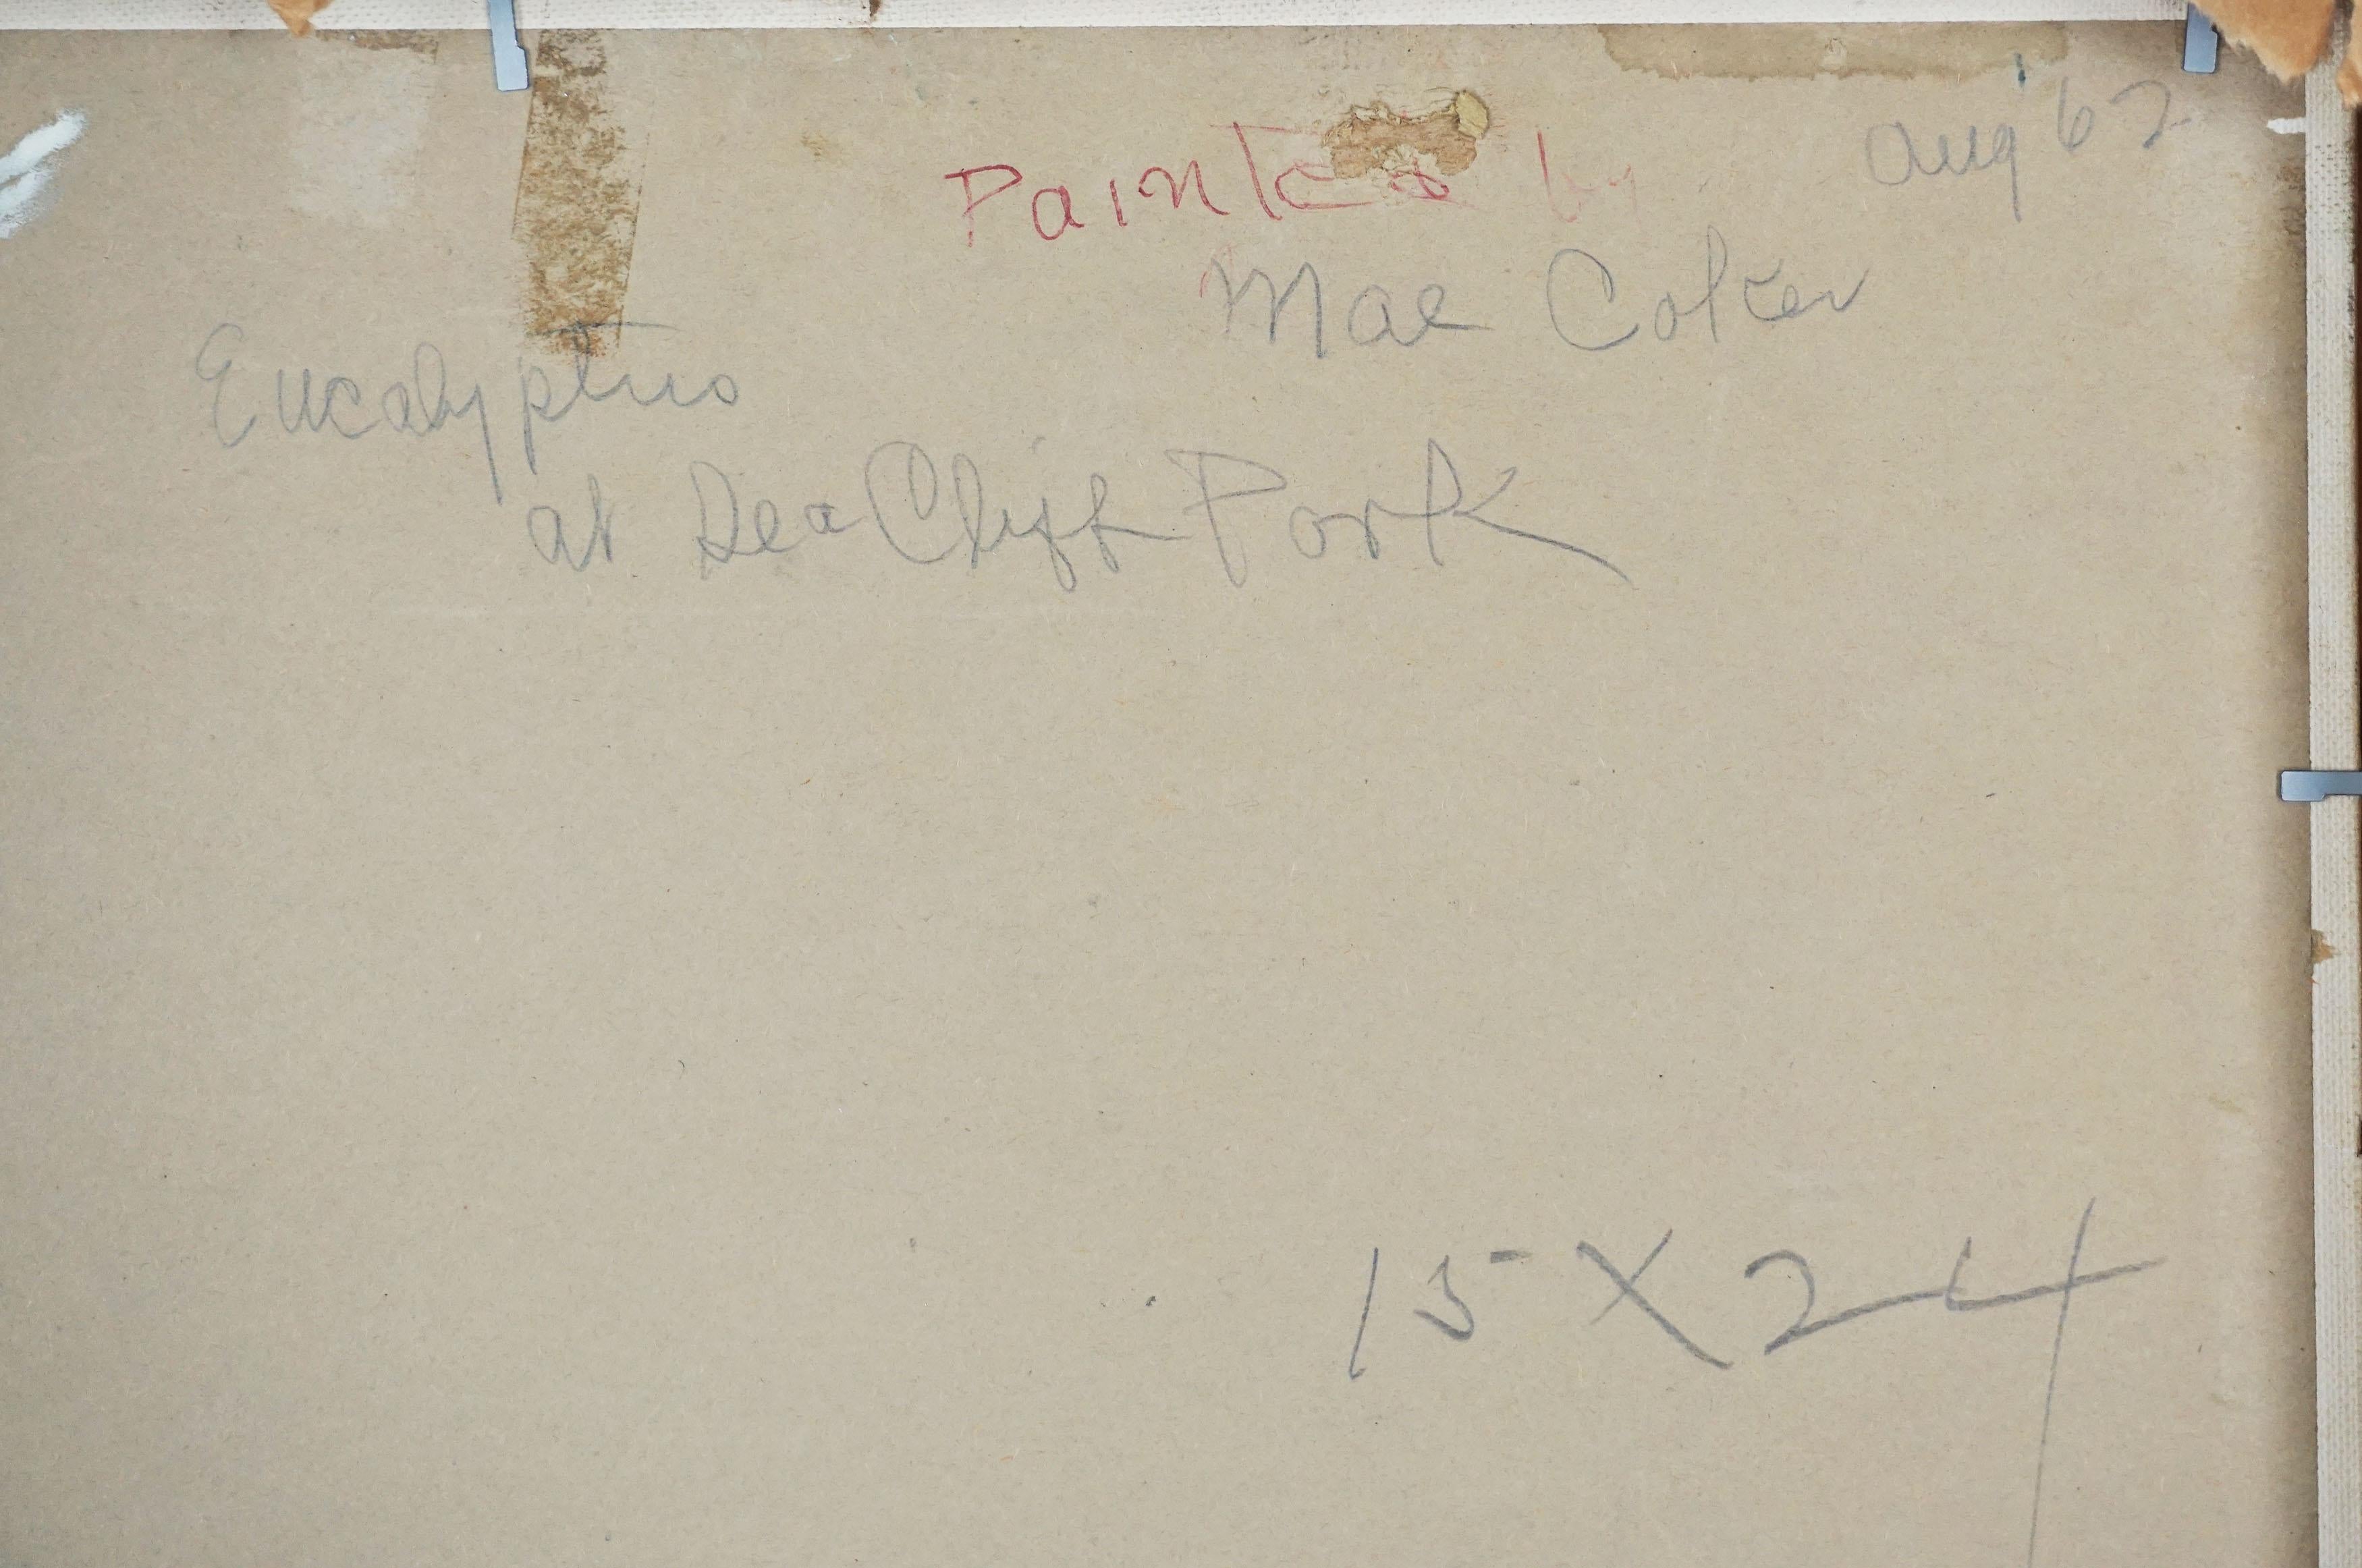 Painted by
Aug 62
Mae
Eucalyptus
at Sea Cliff Park
15 X 24